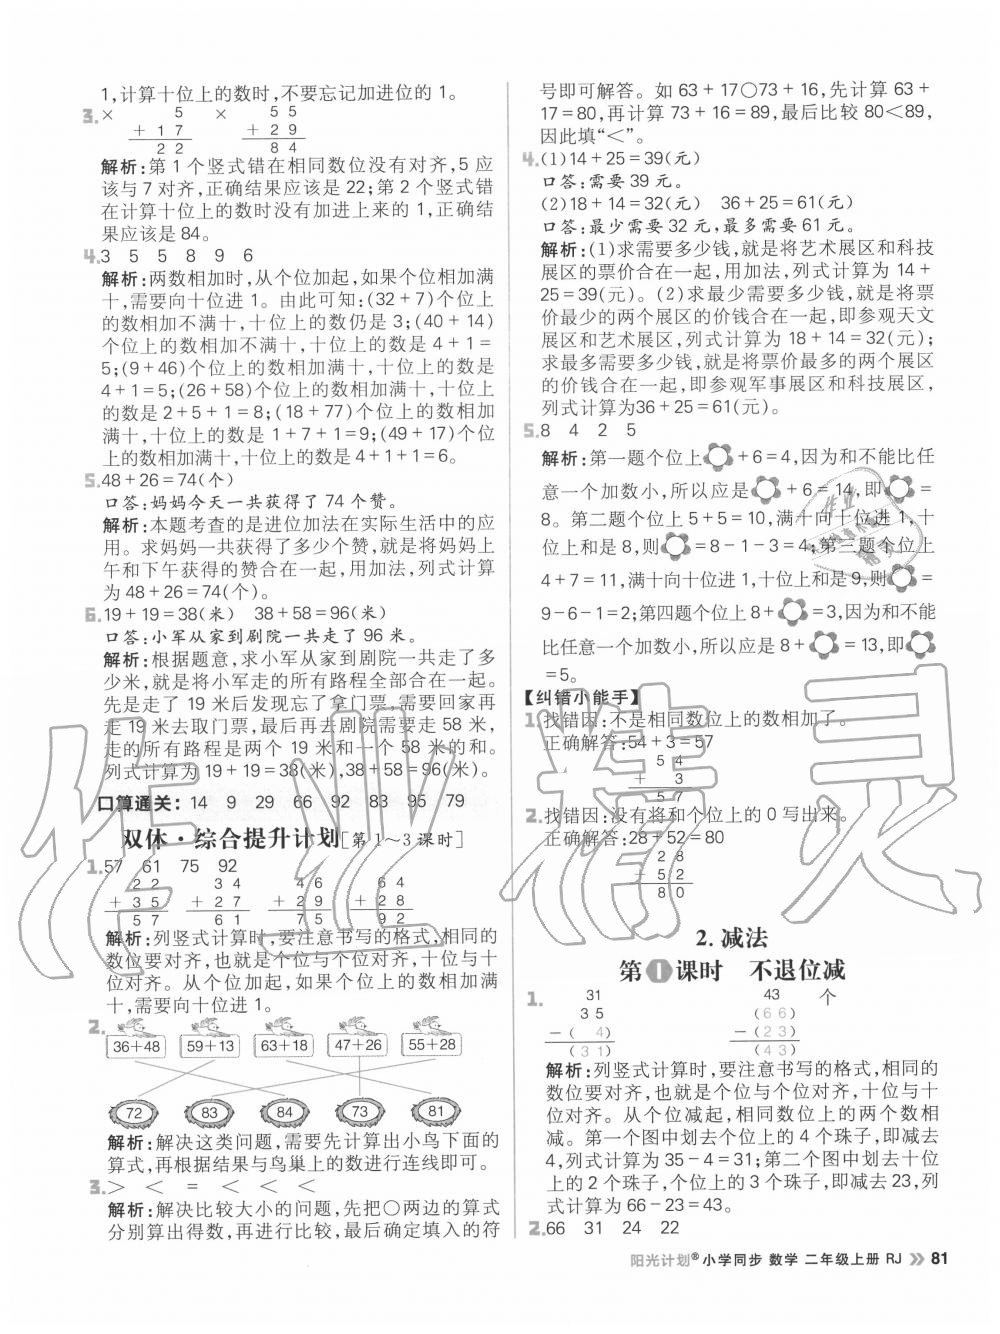 1,计算十位上的数时,不要忘记加进位的 1。
3. ×　　5　　×　　5 5
+ 1 7　　+ 2 9
2 2　　8 4
解析:第 1 个竖式错在相同数位没有对齐,5 应
该与 7 对齐,正确结果应该是 22;第 2 个竖式错
在计算十位上的数时没有加进上来的 1,正确结
果应该是 84。
4. 3　5　5　8　9　6
解析:两数相加时,从个位加起,如果个位相加满
十,需要向十位进 1。由此可知:(32+7)个位上
的数相加不满十,十位上的数仍是 3;(40+14)
个位上的数相加不满十,十位上的数是 4+1=
5;(9+46)个位上的数相加满十,十位上的数是
4+1=5;(26+58)个位上的数相加满十,十位上
的数是 2+5+1=8;(18+77)个位上的数相加
满十,十位上的数是 1+7+1=9;(49+17)个位
上的数相加满十,十位上的数是 4+1+1=6。
5. 48+26=74(个)
口答:妈妈今天一共获得了 74 个赞。
解析:本题考查的是进位加法在实际生活中的应
用。求妈妈一共获得了多少个赞,就是将妈妈上
午和下午获得的赞合在一起,用加法,列式计算
为 48+26=74(个)。
6. 19+19=38(米)　38+58=96(米)
口答:小军从家到剧院一共走了 96 米。
解析:根据题意,求小军从家到剧院一共走了多
少米,就是将小军走的所有路程全部合在一起。
先是走了 19 米后发现忘了拿门票,需要回家再
走 19 米去取门票,最后再去剧院需要走 58 米,
走的所有路程是两个 19 米和一个 58 米的和。
列式计算为 19+19=38(米),38+58=96(米)。
口算通关: 14　9　29　66　92　83　95　79
双休·综合提升计划[第 1~3 课时]
1. 57　61　75　92
2 2　　3 4　　4 6　　6 4
+ 3 5　　+ 2 7　　+ 2 9　　+ 2 8
5 7　　6 1　　7 5　　9 2
解析:列竖式计算时,要注意书写的格式,相同的
数位要对齐,也就是个位与个位对齐,十位与十
位对齐。从个位加起,如果个位上的数相加满
十,需要向十位进 1。
2.
36+48　59+13　63+18　47+26　55+28
72　83　84　73　81
解析:解决这类问题,需要先计算出小鸟下面的
算式,再根据结果与鸟巢上的数进行连线即可。
3. >　<　=　<　<　<
解析:解决比较大小的问题,先把○两边的算式
分别算出得数,再进行比较,最后确定填入的符
号即可解答。如 63+17○73+16,先计算 63+
17=80,再计算 73+16=89,最后比较 80<89,
因此填“<”。
4. (1)14+25=39(元)
口答:需要 39 元。
(2)18+14=32(元)　36+25=61(元)
口答:最少需要 32 元,最多需要 61 元。
解析:(1)求需要多少钱,就是将艺术展区和科技
展区的票价合在一起,用加法,列式计算为 14+
25=39(元)。(2)求最少需要多少钱,就是将票
价最少的两个展区的价钱合在一起,即参观天文
展区和艺术展区,列式计算为 18+14=32(元);
求最多需要多少钱,就是将票价最多的两个展区
的价钱合在一起,即参观军事展区和科技展区,
列式计算为36+25=61(元)。
5. 8　4　2　5
解析:第一题个位上 +6=4,因为和不能比任
意一个加数小,所以应是 +6=14,即 =
8。第二题个位上 5+5=10,满十向十位进 1,十
位上和是 8,则 =8-1-3=4;第三题个位上
4+7=11,满十向十位进 1,十位上和是 9,则 =
9-6-1=2;第四题个位上 8+ =3,因为和不能
比任意一个加数小,所以应是 8+ =13,即
=5。
【纠错小能手】
1. 找错因:不是相同数位上的数相加了。
正确解答:54+3=57
5 4
+ 3
5 7
2. 找错因:没有将和个位上的 0 写出来。
正确解答:28+52=80
2 8
+ 5 2
8 0
2. 减法
第 1 课时　不退位减
1.　31　　43　个
3 5　　(6 6)
-( 4)　　-(2 3)
(3 1)　　(4 3)
解析:列竖式计算时,要注意书写的格式,相同的
数位要对齐,也就是个位与个位对齐,十位与十
位对齐。从个位减起,相同数位上的两个数相
减。第一个图中划去个位上的 4 个珠子,即减去
4,列式计算为 35-4=31;第二个图中划去十位
上的 2 个珠子,个位上的 3 个珠子,即减去 23,列
式计算为 66-23=43。
2. 66　31　24　22
阳光计划® 小学同步 数学 二年级上册 RJ 81
作业精灵